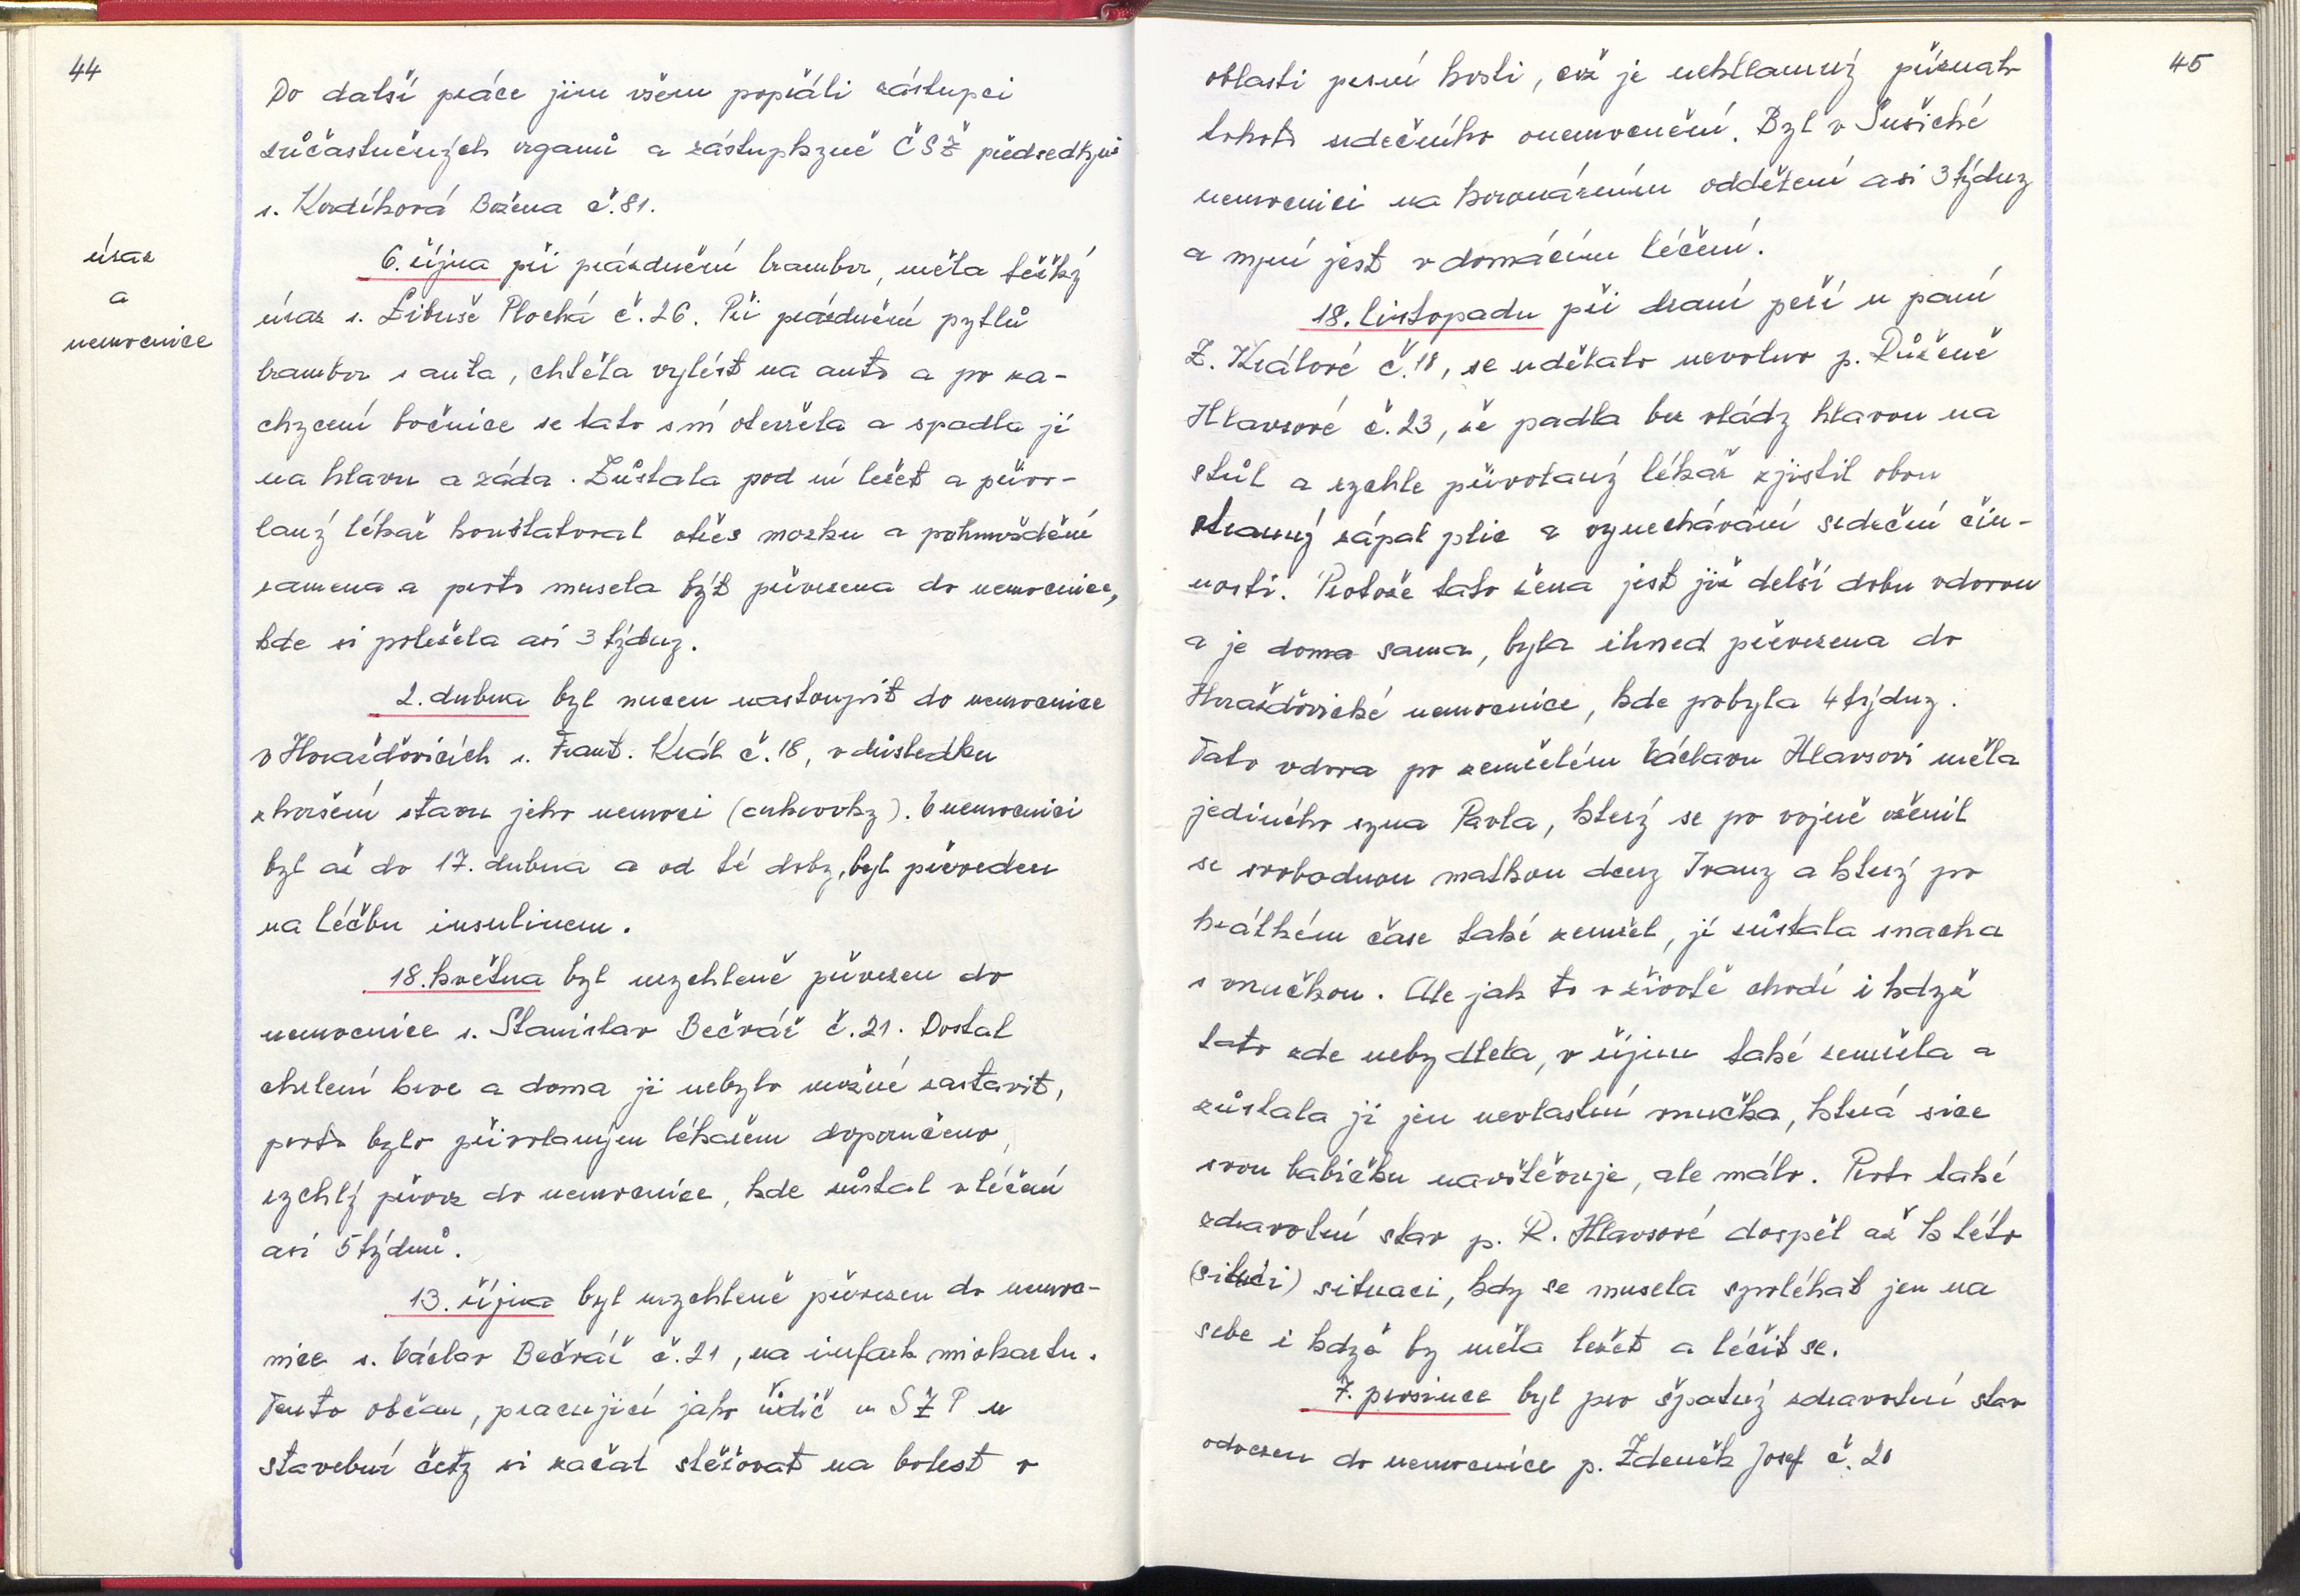 44
Do další práce jim všem popřáli zástupci
zůčastněných orgánů a zástupkyně ČSŽ předsedkyně
s. Kordíková Božena č.81.
úraz
a
nemocnice
6. října při prázdnění brambor, měla těžký
úraz s. Libuše Plochá č.26. Při prázdnění pytlů
brambor s auta, chtěla vylézt na auto a po za-
chycení bočnice se tato s ní otevřela a spadla jí
na hlavu a záda. Zůstala pod ní ležet a přivo-
laný lékař konštatoval otřes mozku a pohmoždění
ramena a proto musela být převezena do nemocnice,
kde si poležela asi 3 týdny.
2. dubna byl nucen nastoupit do nemocnice
v Horažďovicích s. Frant. Král č.18, v důsledku
zhoršení stavu jeho nemoci (cukrovky). V nemocnici
byl až do 17. dubna a od té doby, byl převeden
na léčbu insulinem.
18. května byl urychleně převezen do
nemocnice s. Stanislav Bečvář č.21. Dostal
chrlení krve a doma ji nebylo možné zastavit,
proto bylo přivolaným lékařem doporučeno,
rychlý převoz do nemocnice, kde zůstal v léčení
asi 5 týdnů.
13. října byl urychleně převezen do nemoc-
nice s. Václav Bečvář č.21, na infark miokartu.
Tento občan, pracující jako řidič u SZP u
stavební čety si začal stěžovat na bolest v
45
oblasti prsní kosti, což je neklamný příznak
tohoto srdečního onemocnění. Byl v Sušické
nemocnici na koronárním oddělení asi 3 týdny
a nyní jest v domácím léčení.
18. listopadu při draní peří u paní
Z. Králové č.18, se udělalo nevolno p. Růženě
Hlavsové č.23, že padla bez vlády hlavou na
stůl a rychle přivolaný lékař zjistil obou
stranný zápal plic a vynechávání srdeční čin-
nosti. Protože tato žena jest již delší dobu vdovou
a je doma sama, byla ihned převezena do
Horažďovické nemocnice, kde pobyla 4 týdny.
Tato vdova po zemřelém Václavu Hlavsovi měla
jediného syna Pavla, který se po vojně oženil
se svobodnou matkou dcery Ivany a který po
krátkém čase také zemřel, jí zůstala snacha
s vnučkou. Ale jak to v životě chodí i když
tato zde nebydlela, v říjnu také zemřela a
zůstala jí jen nevlastní vnučka, která sice
svou babičku navštěvuje, ale málo. Proto také
zdravotní stav p. R. Hlavsové dospěl až k této
(situci) situaci, kdy se musela spoléhat jen na
sebe i když by měla ležet a léčit se.
7. prosince byl pro špatný zdravotní stav
odvezen do nemocnice p. Zdeněk Josef č.20